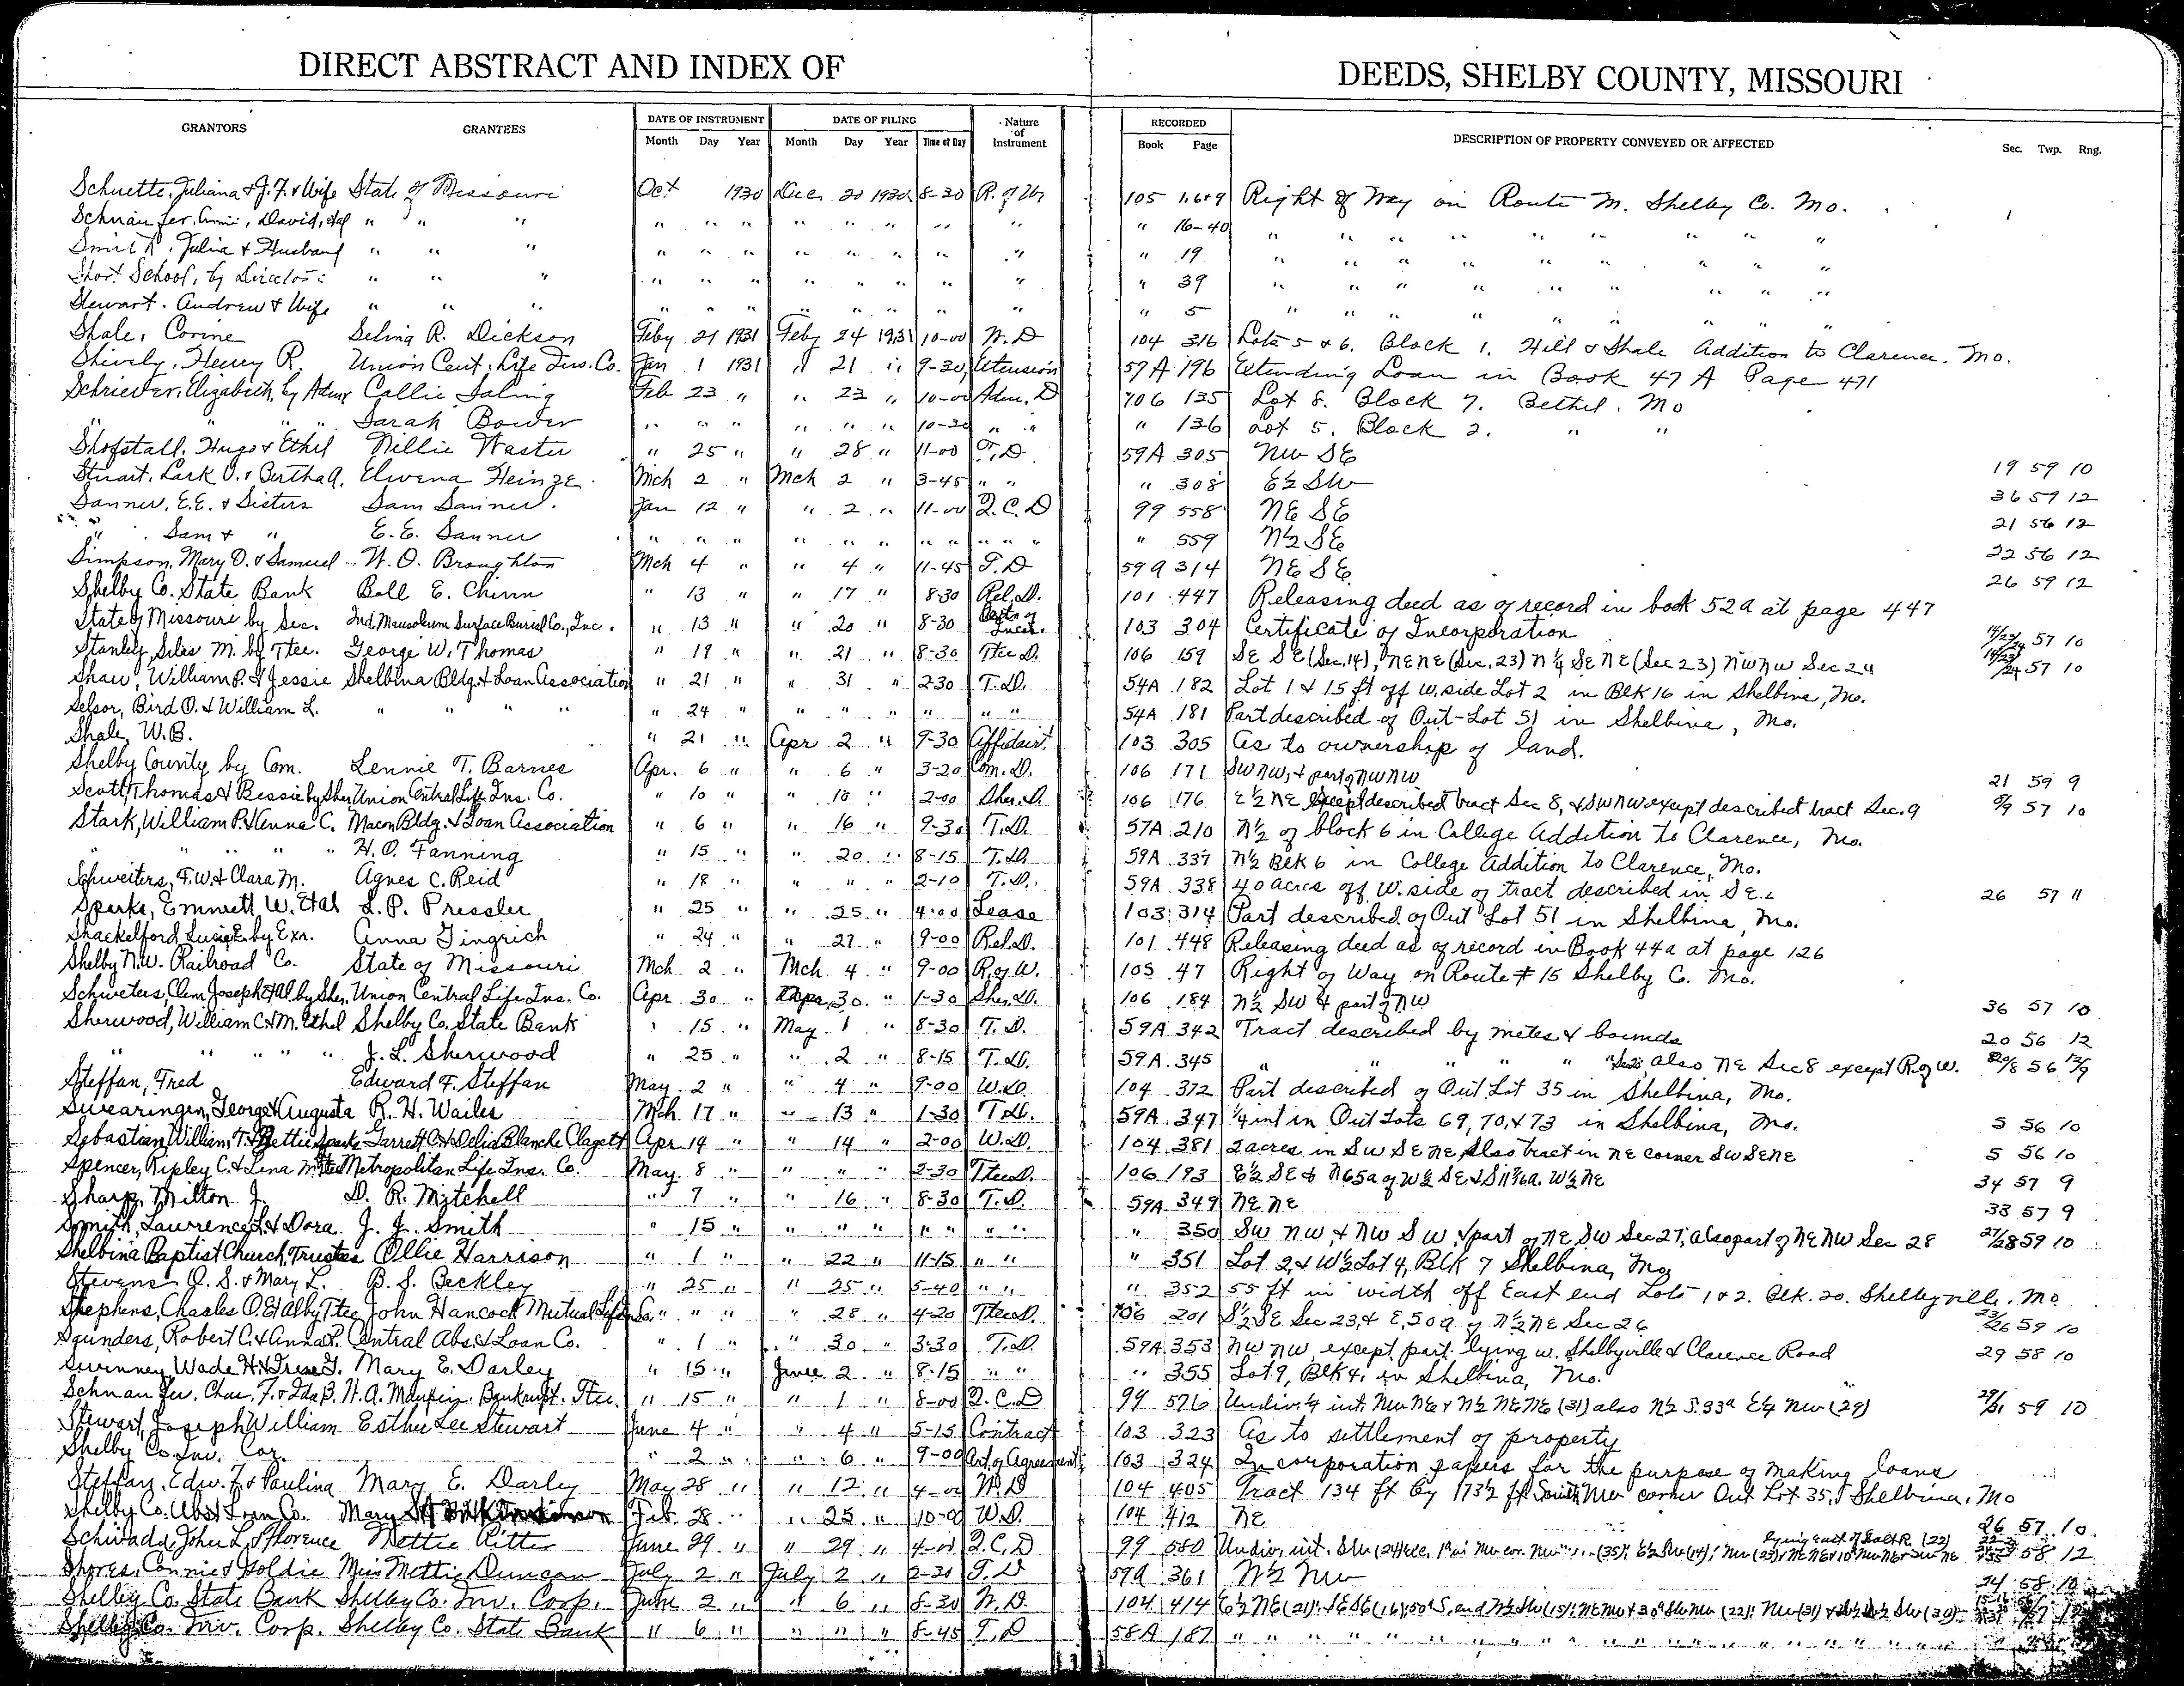 DIRECT ABSTRACT AND INDEX OF DEEDS, SHELBY COUNTY, MISSOURI
GRANTORS GRANTEES DATE OF INSTRUMENT DATE OF FILING Nature of Instrument RECORDED DESCRIPTION OF PROPERTY CONVEYED OR AFFECTED Sec. Twp. Rng.
Month Day Year Month Day Year Time of Day Book Page
Schuette, Juliana & J.F. & Wife State of Missouri Oct 1930 Dec 20 1930 8-30 R. of W. 105 Right of Way on Route M. Shelby Co. Mo.
David, etal " " " " " " " " " " " " 16-40 " " " " " " " "
Smith, Julia & Husband " " " " " " " " " " " 19 " " " " " " " "
Short School, by Directors " " " " " " " " " " " 39 " " " " " " " "
Stewart, Andrew & Wife " " " " " " " " " " " 5 " " " " " " " "
Shale, Corine Selina R. Dickson Feby 21 1931 Feby 24 1931 10-00 W. D 104 316 Lots 5 & 6, Block 1, Hill & Shale Addition to Clarence, Mo.
Shively, Henry R. Union Cent. Life Ins. Co. Jan 1 1931 " 21 " 9-30 Extension 57A 196 Extending Loan in Book 47 A Page 471
Schriever, Elizabeth, by Admr Callie Saling Feb 23 " " 23 " 10-00 Adm. D 106 135 Lot 8. Block 7. Bethel. Mo
" " " Sarah Bower " " " " " " 10-30 " " " 136 Lot 5. Block 2. " "
Shofstall, Hugo & Ethel Nillie Waster " 25 " " 28 " 11-00 T. D 59A 305 NW SE 19 59 10
Stuart, Lark O. & Bertha A. Elwena Heinze Mch 2 " Mch 2 " 3-45 " " " 308 E½ SW 36 59 12
Sanner, E.E. & Sisters Sam Sanner Jan 12 " " 2 " 11-00 Q. C. D 99 558 NE SE 21 56 12
" Sam & " E. E. Sanner " " " " " " " " " " " 559 N½ SE 22 56 12
Simpson, Mary D. & Samuel W. O. Broughton Mch 4 " " 4 " 11-45 T. D 59A 314 NE SE 26 59 12
Shelby Co. State Bank Ball E. Chinn " 13 " " 17 " 8-30 Rel. D. 101 447 Releasing deed as of record in book 52A at page 447
State of Missouri by Sec. Ind. Mausoleum Surface Burial Co., Inc. " 13 " " 20 " 8-30 Certs of Incor. 103 304 Certificate of Incorporation
Stanley, Silas M. by Ttee. George W. Thomas " 19 " " 21 " 8-30 Ttee D. 106 159 SE SE (Sec. 14), NE NE (Sec. 23) N ¼ SE NE (Sec 23) NW NW Sec 24 14/23/24 57 10
Shaw, William P. & Jessie Shelbina Bldg. & Loan Association " 21 " " 31 " 2-30 T. D. 54A 182 Lot 1 & 15 ft off W. side Lot 2 in Blk 16 in Shelbina, Mo.
Selsor, Bird O. & William L. " " " " " 24 " " " " " " " 54A 181 Part described of Out-Lot 51 in Shelbina, Mo.
Shale, W.B. " 21 " Apr 2 " 9-30 Affidavit. 103 305 As to ownership of land.
Shelby County by Com. Lennie T. Barnes Apr. 6 " " 6 " 3-20 Com. D. 106 171 SW NW, & part of NW NW 21 59 9
Scott, Thomas & Bessie by Sher Union Central Life Ins. Co. " 10 " " 10 " 2-00 Sher. D. 106 176 E ½ NE except described tract Sec 8, & SW NW except described tract Sec. 9 8/9 57 10
Stark, William P. & Anna C. Macon Bldg. & Loan Association " 6 " " 16 " 9-30 T. D. 57A 210 N½ of block 6 in College Addition to Clarence, Mo.
" " " " " H. O. Fanning " 15 " " 20 " 8-15 T. D. 59A 337 N½ Blk 6 in College Addition to Clarence, Mo.
Schweiters, F.W. & Clara M. Agnes C. Reid " 18 " " " " 2-10 T. D. 59A 338 40 acres off W. side of tract described in S E. 26 57 11
Sparks, Emmett W. Etal L. P. Pressler " 25 " " 25 " 4-00 Lease 103 314 Part described of Out Lot 51 in Shelbina, Mo.
Shackelford, by Exr. Anna Gingrich " 24 " " 27 " 9-00 Rel. D. 101 448 Releasing deed as of record in Book 44A at page 126
Shelby N.W. Railroad Co. State of Missouri Mch. 2 " Mch. 4 " 9-00 R. of W. 105 47 Right of Way on Route # 15 Shelby Co. Mo.
Schweters, Clem Joseph Etal. by Sher. Union Central Life Ins. Co. Apr. 30 " Apr. 30. " 1-30 Sher. D. 106 184 N½ SW & part of NW 36 57 10
Sherwood, William C. & M. Ethel Shelby Co. State Bank " 15 " May 1 " 8-30 T. D. 59A 342 Tract described by metes & bounds 20 56 12
" " " " " J. L. Sherwood " 25 " " 2 " 8-15 T. D. 59A 345 " " " " " also NE Sec 8 except R. of W. 20/8 56 12/9
Steffan, Fred Edward F. Steffan May 2 " " 4 " 9-00 W. D. 104 372 Part described of Out Lot 35 in Shelbina, Mo.
Swearingen, George & Augusta R. H. Wailes Mch. 17 " " 13 " 1-30 T. D. 59A 347 ¼ int in Out Lots 69, 70, & 73 in Shelbina, Mo. 5 56 10
Sebastian, William T. & Garrett C. & Delia Blanche Clagett Apr. 14 " " 14 " 2-00 W. D. 104 381 2 acres in SW SE NE, also tract in NE corner SW SE NE 5 56 10
Spencer, Ripley C. & Lena M. Ttee Metropolitan Life Ins. Co. May. 8 " " " " 2-30 Ttee D. 106 193 E½ SE & N65a of W½ SE & W½ NE 34 57 9
Sharp, Milton J. D. R. Mitchell " 7 " " 16 " 8-30 T. D. 59A 349 NE NE 33 57 9
Smith, Lawrence L. & Dora J. J. Smith " 15 " " " " " " " " " 350 SW NW, & NW SW, & part of NE SW Sec 27; also part of NE NW Sec 28 27/28 59 10
Shelbina Baptist Church, Trustees Ollie Harrison " 1 " " 22 " 11-15 " " " 351 Lot 2 & W½ Lot 4, Blk 7 Shelbina, Mo
Stevens O. S. & Mary L. B. S. Beckley " 25 " " 25 " 5-40 " " " 352 55 ft in width off East end Lots 1 & 2. Blk. 20. Shelbyville. Mo
Stephens, Charles O. Etal by Ttee John Hancock Mutual Life " " " " 28 " 4-20 Ttee D. 106 201 S½ SE Sec 23, & E, 50a of N½ NE Sec 26 23/26 59 10
Saunders, Robert C. & Anna P. Central Abs. & Loan Co. " 1 " " 30 " 3-30 T. D. 59A 353 NW NW, except part lying W. Shelbyville & Clarence Road 29 58 10
Swinney Wade H. & Irene G. Mary E. Darley " 15 " June 2 " 8-15 " " " 355 Lot 9, Blk 4, in Shelbina, Mo.
H. A. Maupin. Bankrupt. Ttee. " 15 " " 1 " 8-00 Q. C. D 99 576 Undiv. ¼ int. NW NE & N½ NE NE (31) also N½ S. 33a E½ NW (29) 29/31 59 10
Stewart, Joseph William Esther Lee Stewart June 4 " " 4 " 5-15 Contract 103 323 As to settlement of property
Shelby Co. Inv. Cor. " 2 " " 6 " 9-00 Art. of Agreement 103 324 Incorporation papers for the purpose of making loans
Steffan, Edw. F. & Paulina Mary E. Darley May 28 " " 12 " 4-00 W. D 104 405 Tract 134 ft by 173½ ft NW corner Out Lot 35, Shelbina, Mo
Shelby Co. Abst. Loan Co. Mary Feb. 28 " " 25 " 10-00 W. D. 104 412 NE 26 57 10
John L. & Florence Nettie Ritter June 29 " " 29 " 4-00 Q. C. D 99 580 Undiv. int. 58 12
Shores, Connie & Goldie Miss Mettie Duncan July 2 " July 2 " 2-30 T. D 59A 361 W½ NW 24 58 10
Shelby Co. State Bank Shelby Co. Inv. Corp. June 2 " " 6 " 8-30 W. D. 104 414
Shelby Co. Inv. Corp. Shelby Co. State Bank " 6 " " " " 8-45 T. D 58A 187 " " " " " " " " " "